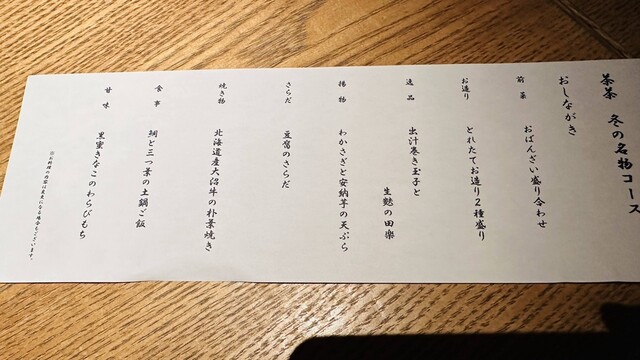 茶茶 冬の名物コース
おしながき
前菜 おばんざい盛り合わせ
お造り とれたてお造り2種盛り
逸品 出汁巻き玉子と
生麩の田楽
揚物 わかさぎと安納芋の天ぷら
さらだ 豆富のさらだ
焼き物 北海道産大沼牛の朴葉焼き
食事 鯛と三つ葉の土鍋ご飯
甘味 黒蜜きなこのわらびもち
※お料理の内容は変更になる場合もございます。